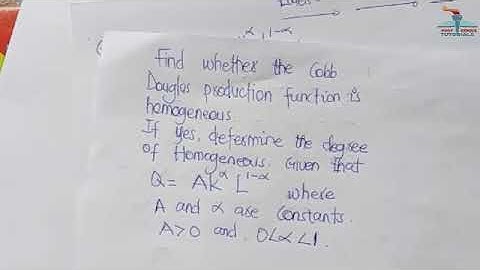 α 1-α
Find whether the Cobb
Douglas production function is
homogeneous.
If yes, determine the degree
of Homogeneous. Given that
Q = AK^α L^1-α where
A and α are Constants.
A>0 and 0<α<1.
TUTORIALS